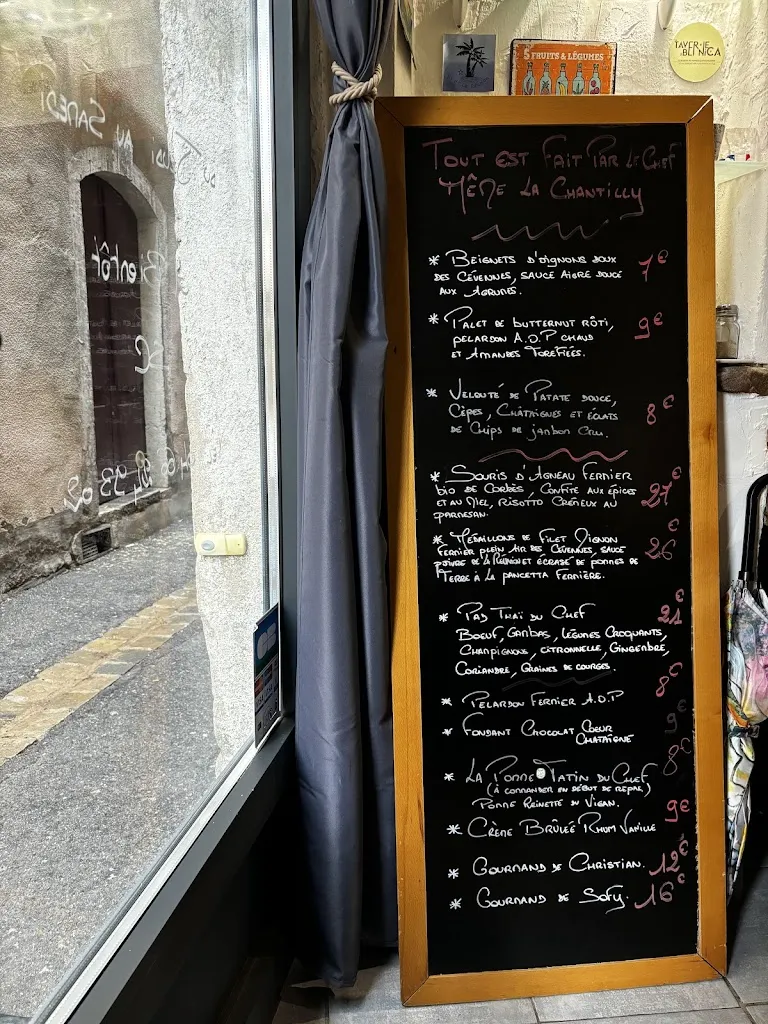 5 FRUITS & LÉGUMES
TOUT EST FAIT PAR LE CHEF
MÊME LA CHANTILLY
* BEIGNETS D'OIGNONS DOUX
DES CÉVENNES, SAUCE AIGRE DOUCE
AUX AGRUMES.
7€
* PALET DE BUTTERNUT RÔTI,
PELARDON A.O.P CHAUD
ET AMANDES TORÉFIÉES.
9€
* VELOUTÉ DE PATATE DOUCE,
CÈPES, CHÂTAIGNES ET ÉCLATS
DE CHIPS DE JAMBON CRU.
8€
* SOURIS D'AGNEAU FERMIER
BIO DE CORBÈS, CONFITE AUX ÉPICES
ET AU MIEL, RISOTTO CRÉMEUX AU
PARMESAN.
27€
* MÉDAILLONS DE FILET MIGNON
FERMIER PLEIN AIR DES CÉVENNES, SAUCE
POIVRE DE LA RÉUNION ET ÉCRASÉ DE POMMES DE
TERRE À LA PANCETTA FERMIÈRE.
26€
* PAD THAÏ DU CHEF
BOEUF, GAMBAS, LÉGUMES CROQUANTS,
CHAMPIGNONS, CITRONNELLE, GINGEMBRE,
CORIANDRE, GRAINES DE COURGES.
21€
* PELARDON FERMIER A.O.P
8€
* FONDANT CHOCOLAT COEUR
CHATAIGNE
9€
* LA POMME TATIN DU CHEF
(À COMMANDER EN DÉBUT DE REPAS)
POMME REINETTE DU VIGAN.
8€
* CRÈME BRÛLÉE RHUM VANILLE
9€
* GOURMAND DE CHRISTIAN.
12€
* GOURMAND DE SOFY.
16€
AU SAMEDI
Bientôt